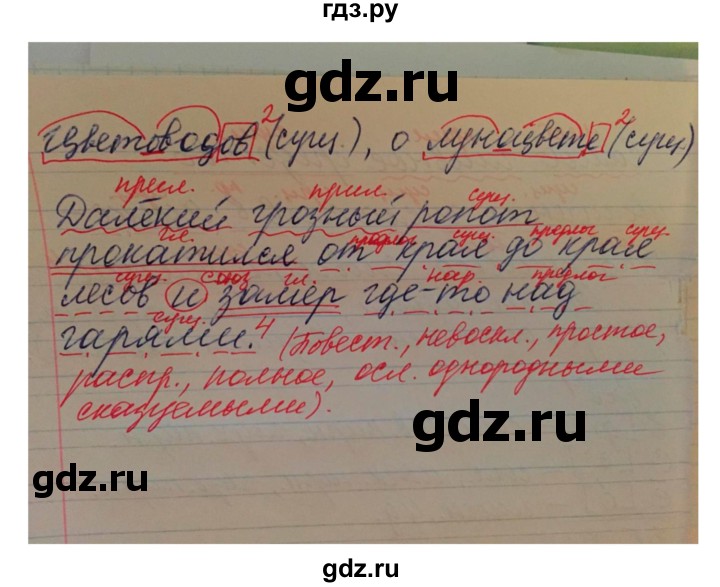 гдз.ру
gdz.ru
цветоводов² (сущ.), о луноцвете² (сущ.)
прил. прил. сущ.
Далёкий грозный ропот
гл. предлог сущ. предлог сущ.
прокатился от края до края
сущ. союз гл. нар предлог
лесов и замер где-то над
сущ.
гарями.⁴ (Повест., невоскл., простое,
распр., полное, осл. однородными
сказуемыми).
gdz.ru
gdz.ru
gdz.ru